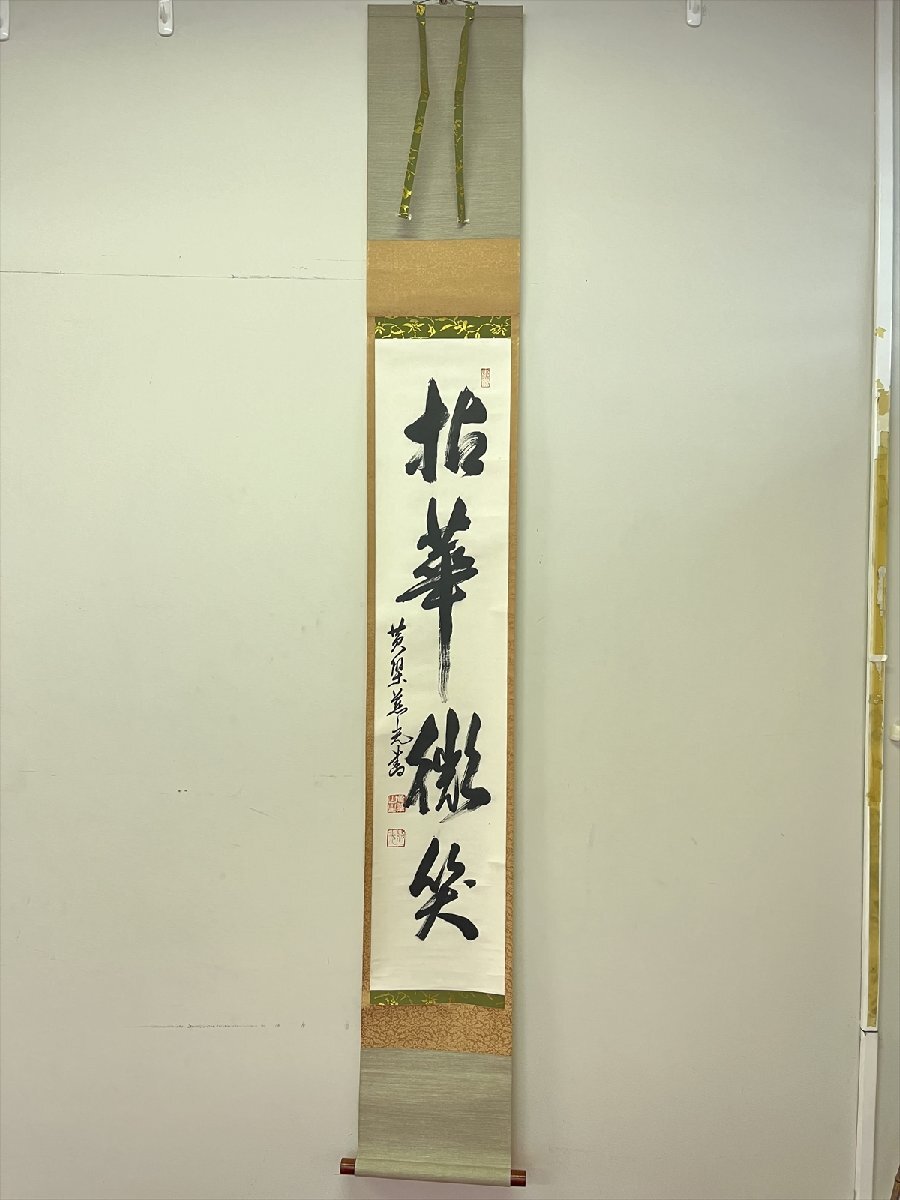 拈華微笑
黄檗蕉元書